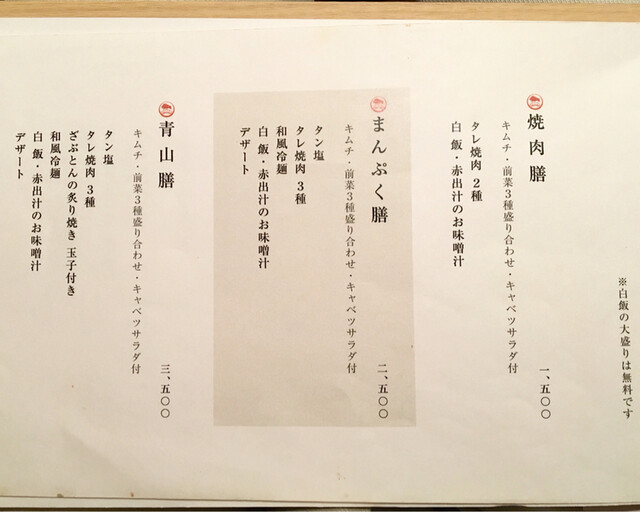 ※白飯の大盛りは無料です
焼肉膳
キムチ・前菜3種盛り合わせ・キャベツサラダ付
タレ焼肉 2種
白飯・赤出汁のお味噌汁
一、五〇〇
まんぷく膳
キムチ・前菜3種盛り合わせ・キャベツサラダ付
タン塩
タレ焼肉 3種
和風冷麺
白飯・赤出汁のお味噌汁
デザート
二、五〇〇
青山膳
キムチ・前菜3種盛り合わせ・キャベツサラダ付
タン塩
タレ焼肉 3種
ざぶとんの炙り焼き 玉子付き
和風冷麺
白飯・赤出汁のお味噌汁
デザート
三、五〇〇